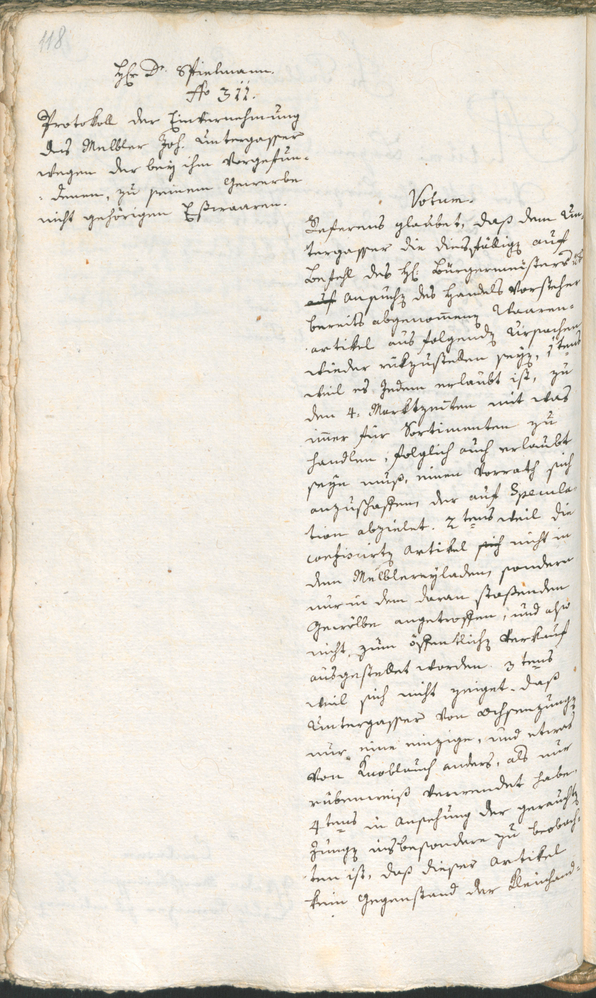 118
H. Dr. Spielmann.
No 311.
Protokoll der Einvernehmung
des Melbler Joh. Untergasser
wegen der bey ihm vorgefun-
denen, zu seinem Gewerbe
nicht gehörigen Eßwaaren.
Votum.
Referens glaubet, daß dem Un-
tergasser die diesfällig auf
Befehl des H. Bürgermeisters
auf Ansuchen des Handels Vorsteher
bereits abgenommenen Waaren-
artikel aus folgenden Ursachen
wieder rükzustellen seyen, 1tens
weil es Jedem erlaubt ist, zu
den 4. Marktzeiten mit was
immer für Sortimenten zu
handlen, folglich auch erlaubt
seyn muß, einen Vorrath sich
anzuschaffen, der auf Specula-
tion abzielet. 2tens weil die
Artikel sich nicht in
dem Melblereyladen, sondern
nur in dem daran stoßenden
Gewölbe angetroffen, und also
nicht zum öffentlichen Verkauf
ausgestellet worden. 3tens
weil sich nicht zeiget, daß
Untergasser von Ochsenzungen
nur eine einzige, und etwas
von Knoblauch anders, als nur
verwendet habe,
4tens in Ansehung der geräuchten
Zungen insbesondere zu beobach-
ten ist, daß dieser Artikel
kein Gegenstand der Kleinhand-